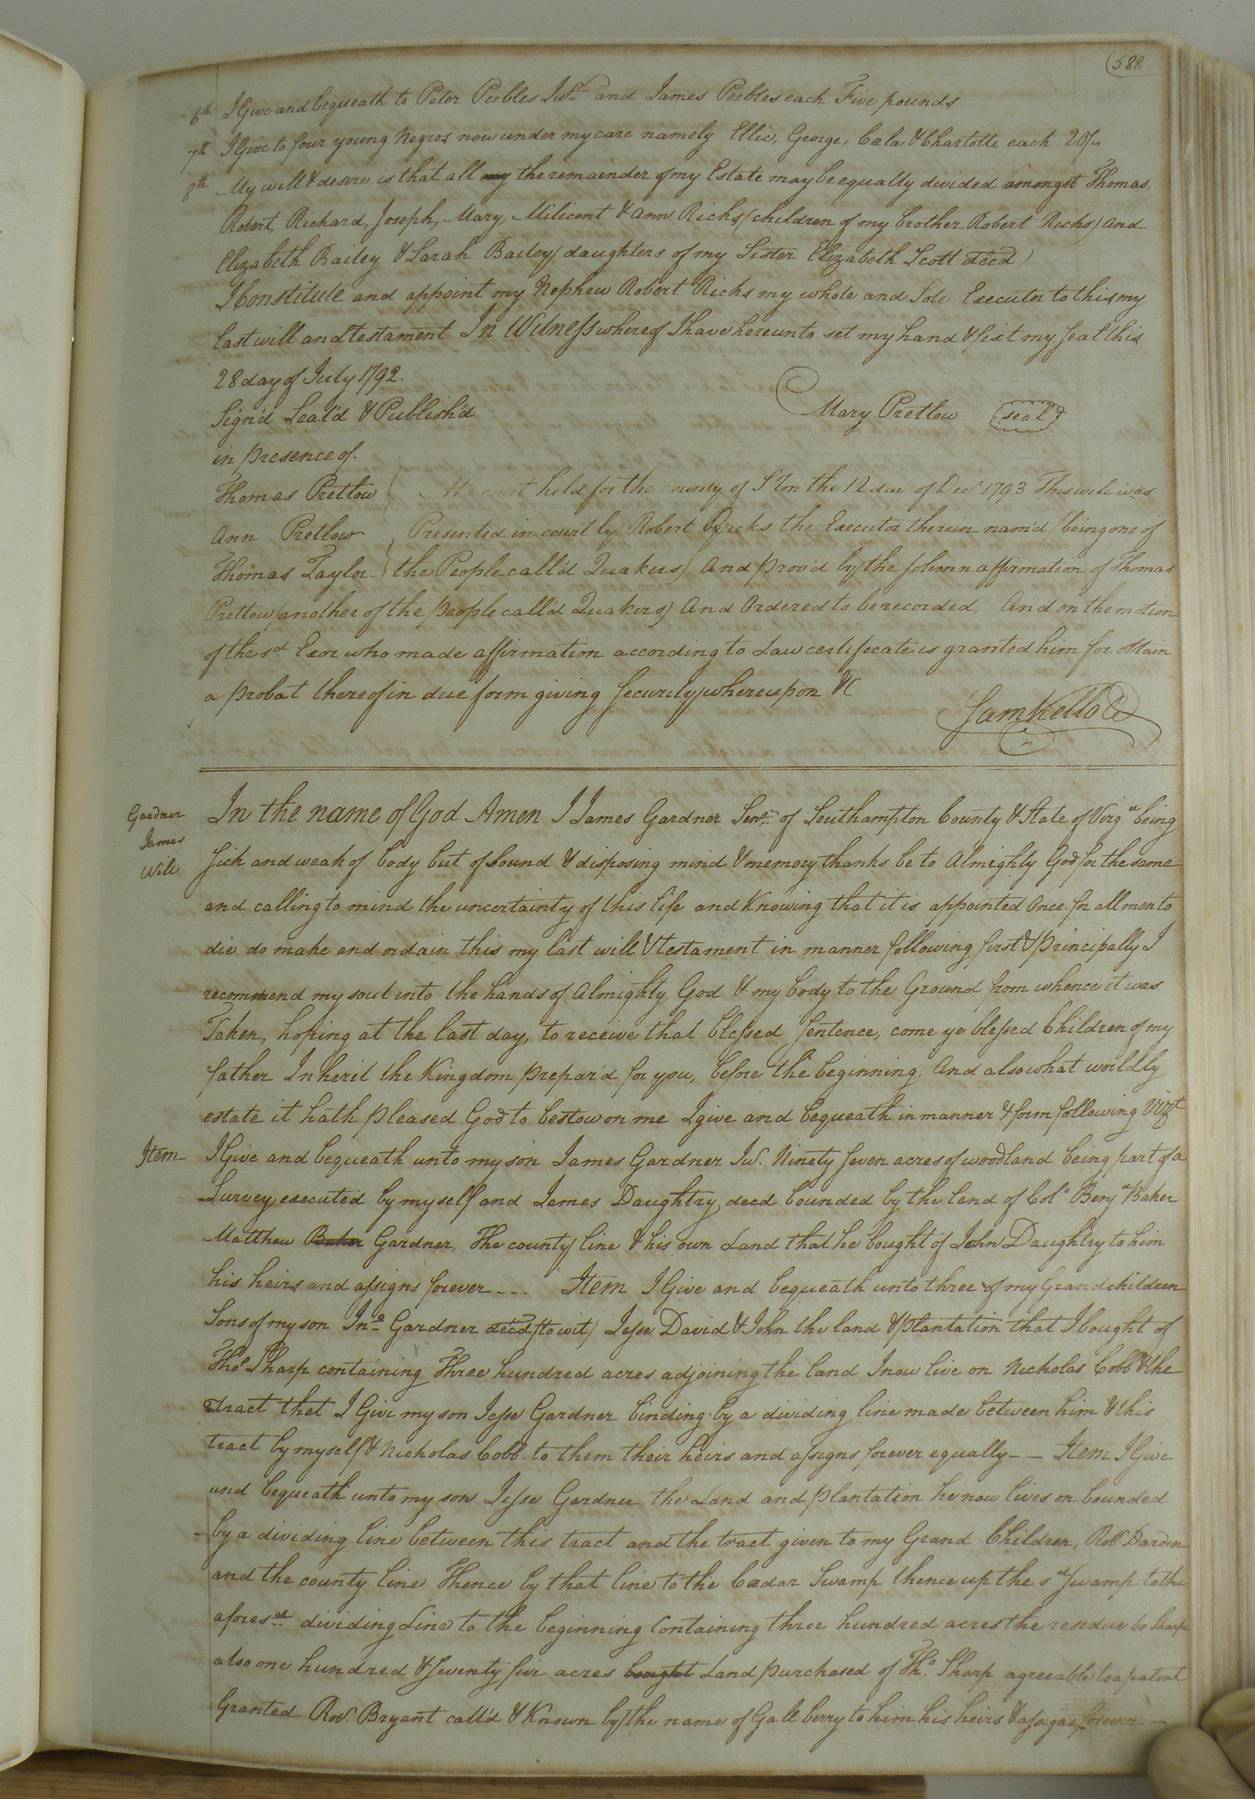 588
6th I Give and bequeath to Peter Peebles Junr and James Peebles each Five pounds
7th I Give to four young Negros now under my care namely Ellic, George, Cala & Charlotte each 20/-
8th My will & desire is that all my the remainder of my Estate may be equally divided amongst Thomas,
Robert, Richard, Joseph, Mary, Milicent & Ann Ricks (children of my brother Robert Ricks) and
Elizabeth Bailey & Sarah Bailey (daughters of my Sister Elizabeth Scott decd)
I Constitute and appoint my Nephew Robert Ricks my whole and Sole Executor to this my
last will and testament In Witness whereof I have hereunto set my hand & fixt my seal this
28 day of July 1792.
Sign'd Seal'd & Publish'd Mary Pretlow seal
in presence of.
Thomas Pretlow At court held for the county of S'Ton the 12 day of Dec 1793 This will was
Ann Pretlow Presented in court by Robert Ricks the Executor therein nam'd (being one of
Thomas Taylor the People call'd Quakers) And prov'd by the solemn affirmation of Thomas
Pretlow (another of the people call'd Quakers) And Ordered to be recorded, And on the motion
of the sd Exor who made affirmation according to Law certificate is granted him for obtain
a probat thereof in due form giving Security whereupon &C
Sam Kello C
Gardner
James
Will
In the name of God Amen I James Gardner Senr of Southampton County & State of Virga being
sick and weak of body but of Sound & disposing mind & memory thanks be to Almighty God for the same
and calling to mind the uncertainty of this life and Knowing that it is appointed Once for all men to
die do make and ordain this my last will & testament in manner following first & principally I
recommend my soul into the hands of Almighty God & my body to the Ground from whence it was
Taken, hoping at the last day, to receive that blessed Sentence, come ye blessed Children of my
father Inherit the Kingdom prepar'd for you, before the beginning, And also what worldly
estate it hath pleased God to bestow on me I give and bequeath in manner & form following Vizt
Item I Give and bequeath unto my son James Gardner Jur. Ninety seven acres of woodland being part of a
Survey executed by myself and James Daughtry, decd bounded by the land of Colo Benja Baker
Matthew Baker Gardner, The county line & his own Land that he bought of John Daughtry to him
his heirs and assigns forever --- Item I Give and bequeath unto three of my Grandchildren
Sons of my son Jno Gardner decd (to wit) Jesse David & John the land & plantation that I bought of
Thos Sharp containing Three hundred acres adjoining the land I now live on Nicholas Cobb & the
Tract that I Give my son Jesse Gardner binding by a dividing line made between him & this
tract by myself & Nicholas Cobb to them their heirs and assigns forever equally -- Item I Give
and bequeath unto my son Jesse Gardner the Land and plantation he now lives on bounded
by a dividing line between this tract and the tract given to my Grand Children, Robt Darden
and the county line Thence by that line to the Cædar Swamp thence up the sd swamp to the
aforesd dividing Line to the beginning Containing three hundred acres the residue Sharp
also one hundred & seventy five acres bought Land purchased of Tho. Sharp agreeable to a patent
Granted Robt Bryant call'd & Known by the name of Gall berry to him his heirs & assigns forever --